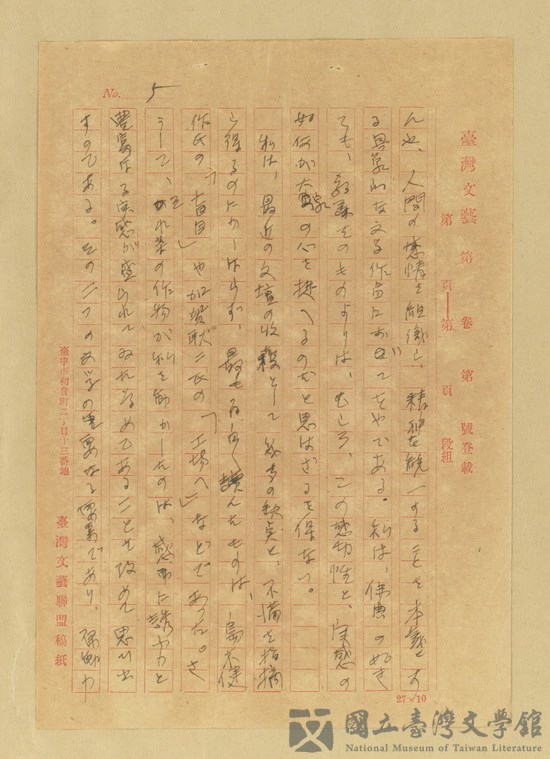 臺灣文藝 第 卷 第 號登載
第 頁──第 頁 段組
No. 5
んや、人間の感情を組織し、精神を統一することを本義とす
る具象的な文学作品に於いてをやである。私は、佛典の如き
ても、教義そのものよりは、むしろ、この感動性と、実感の
如何が大衆の心を捷へるのだと思はざるを得ない。
私は、最近の文壇の收穫として幾多の欠点と、不備を指摘
し得るのにかゝはらず、最も面白く読んだものは、島木健
作氏の「盲目」や加賀耿二氏の「工場へ」などであった。さ
うして、これ等の作物が私を動かしたのは、感動に誘ふ力と
豊富なる実感が盛られてゐれるためであることを改めて思ひ出
すのである。その二つの文学の重要なる要素であり、
27×10
臺中市初音町二丁目十三番地
臺灣文藝聯盟稿紙
國立臺灣文學館
National Museum of Taiwan Literature